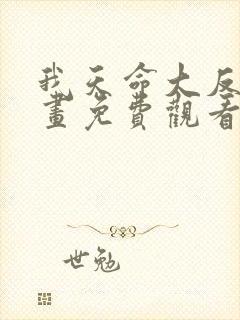 我天命大反
畫免費觀看
世勉